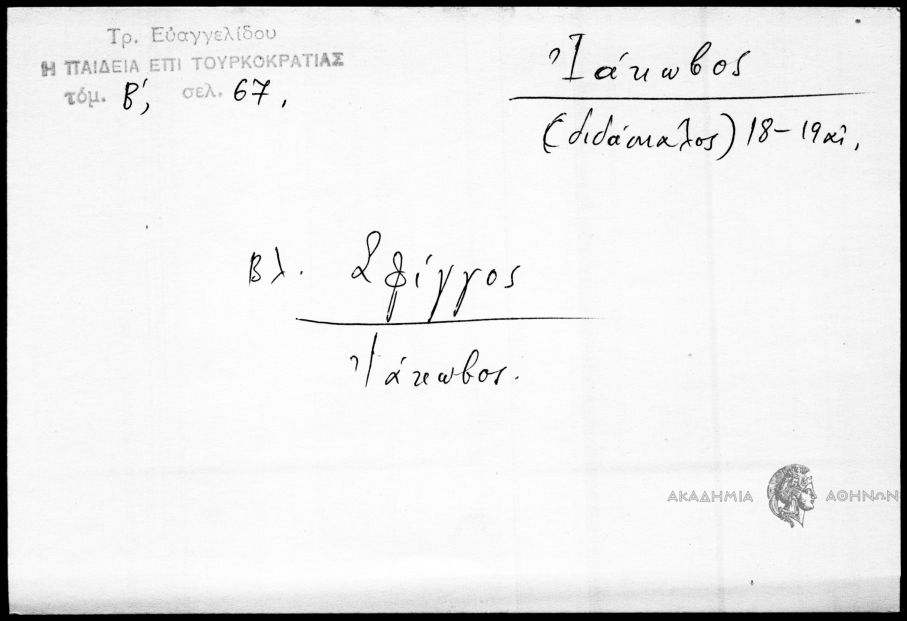 Τρ. Εὐαγγελίδου
Η ΠΑΙΔΕΙΑ ΕΠΙ ΤΟΥΡΚΟΚΡΑΤΙΑΣ
τόμ. Β', σελ. 67.
Ἰάκωβος
(διδάσκαλος) 18-19 αἰ.
Βλ. Σφίγγος
Ἰάκωβος.
ΑΚΑΔΗΜΙΑ ΑΘΗΝΩΝ